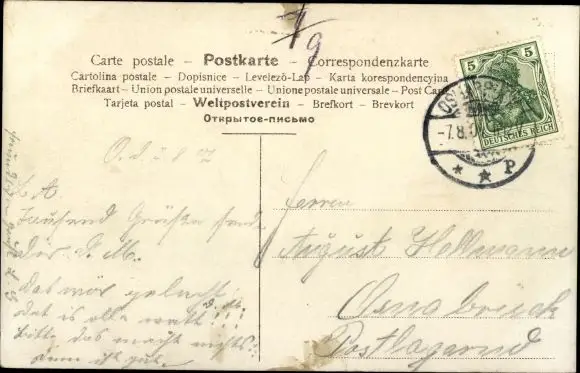 Carte postale – Postkarte – Correspondenzkarte
Cartolina postale – Dopisnice – Levelező-Lap – Karta korespondencyjna
Briefkaart – Union postale universelle – Unione postale universale – Post Card
Tarjeta postal – Weltpostverein – Brefkort – Brevkort
Открытое-письмо
5 5
DEUTSCHES REICH
-7.8.
* * P
9
L. A.
Tausend Grüße sendet
dir d. M.
das wär gelacht!
dat is alle watt!!!
bitte das macht nichts!
dann ist gut.
Herrn
August Hellmann
Osnabrück
Postlagernd